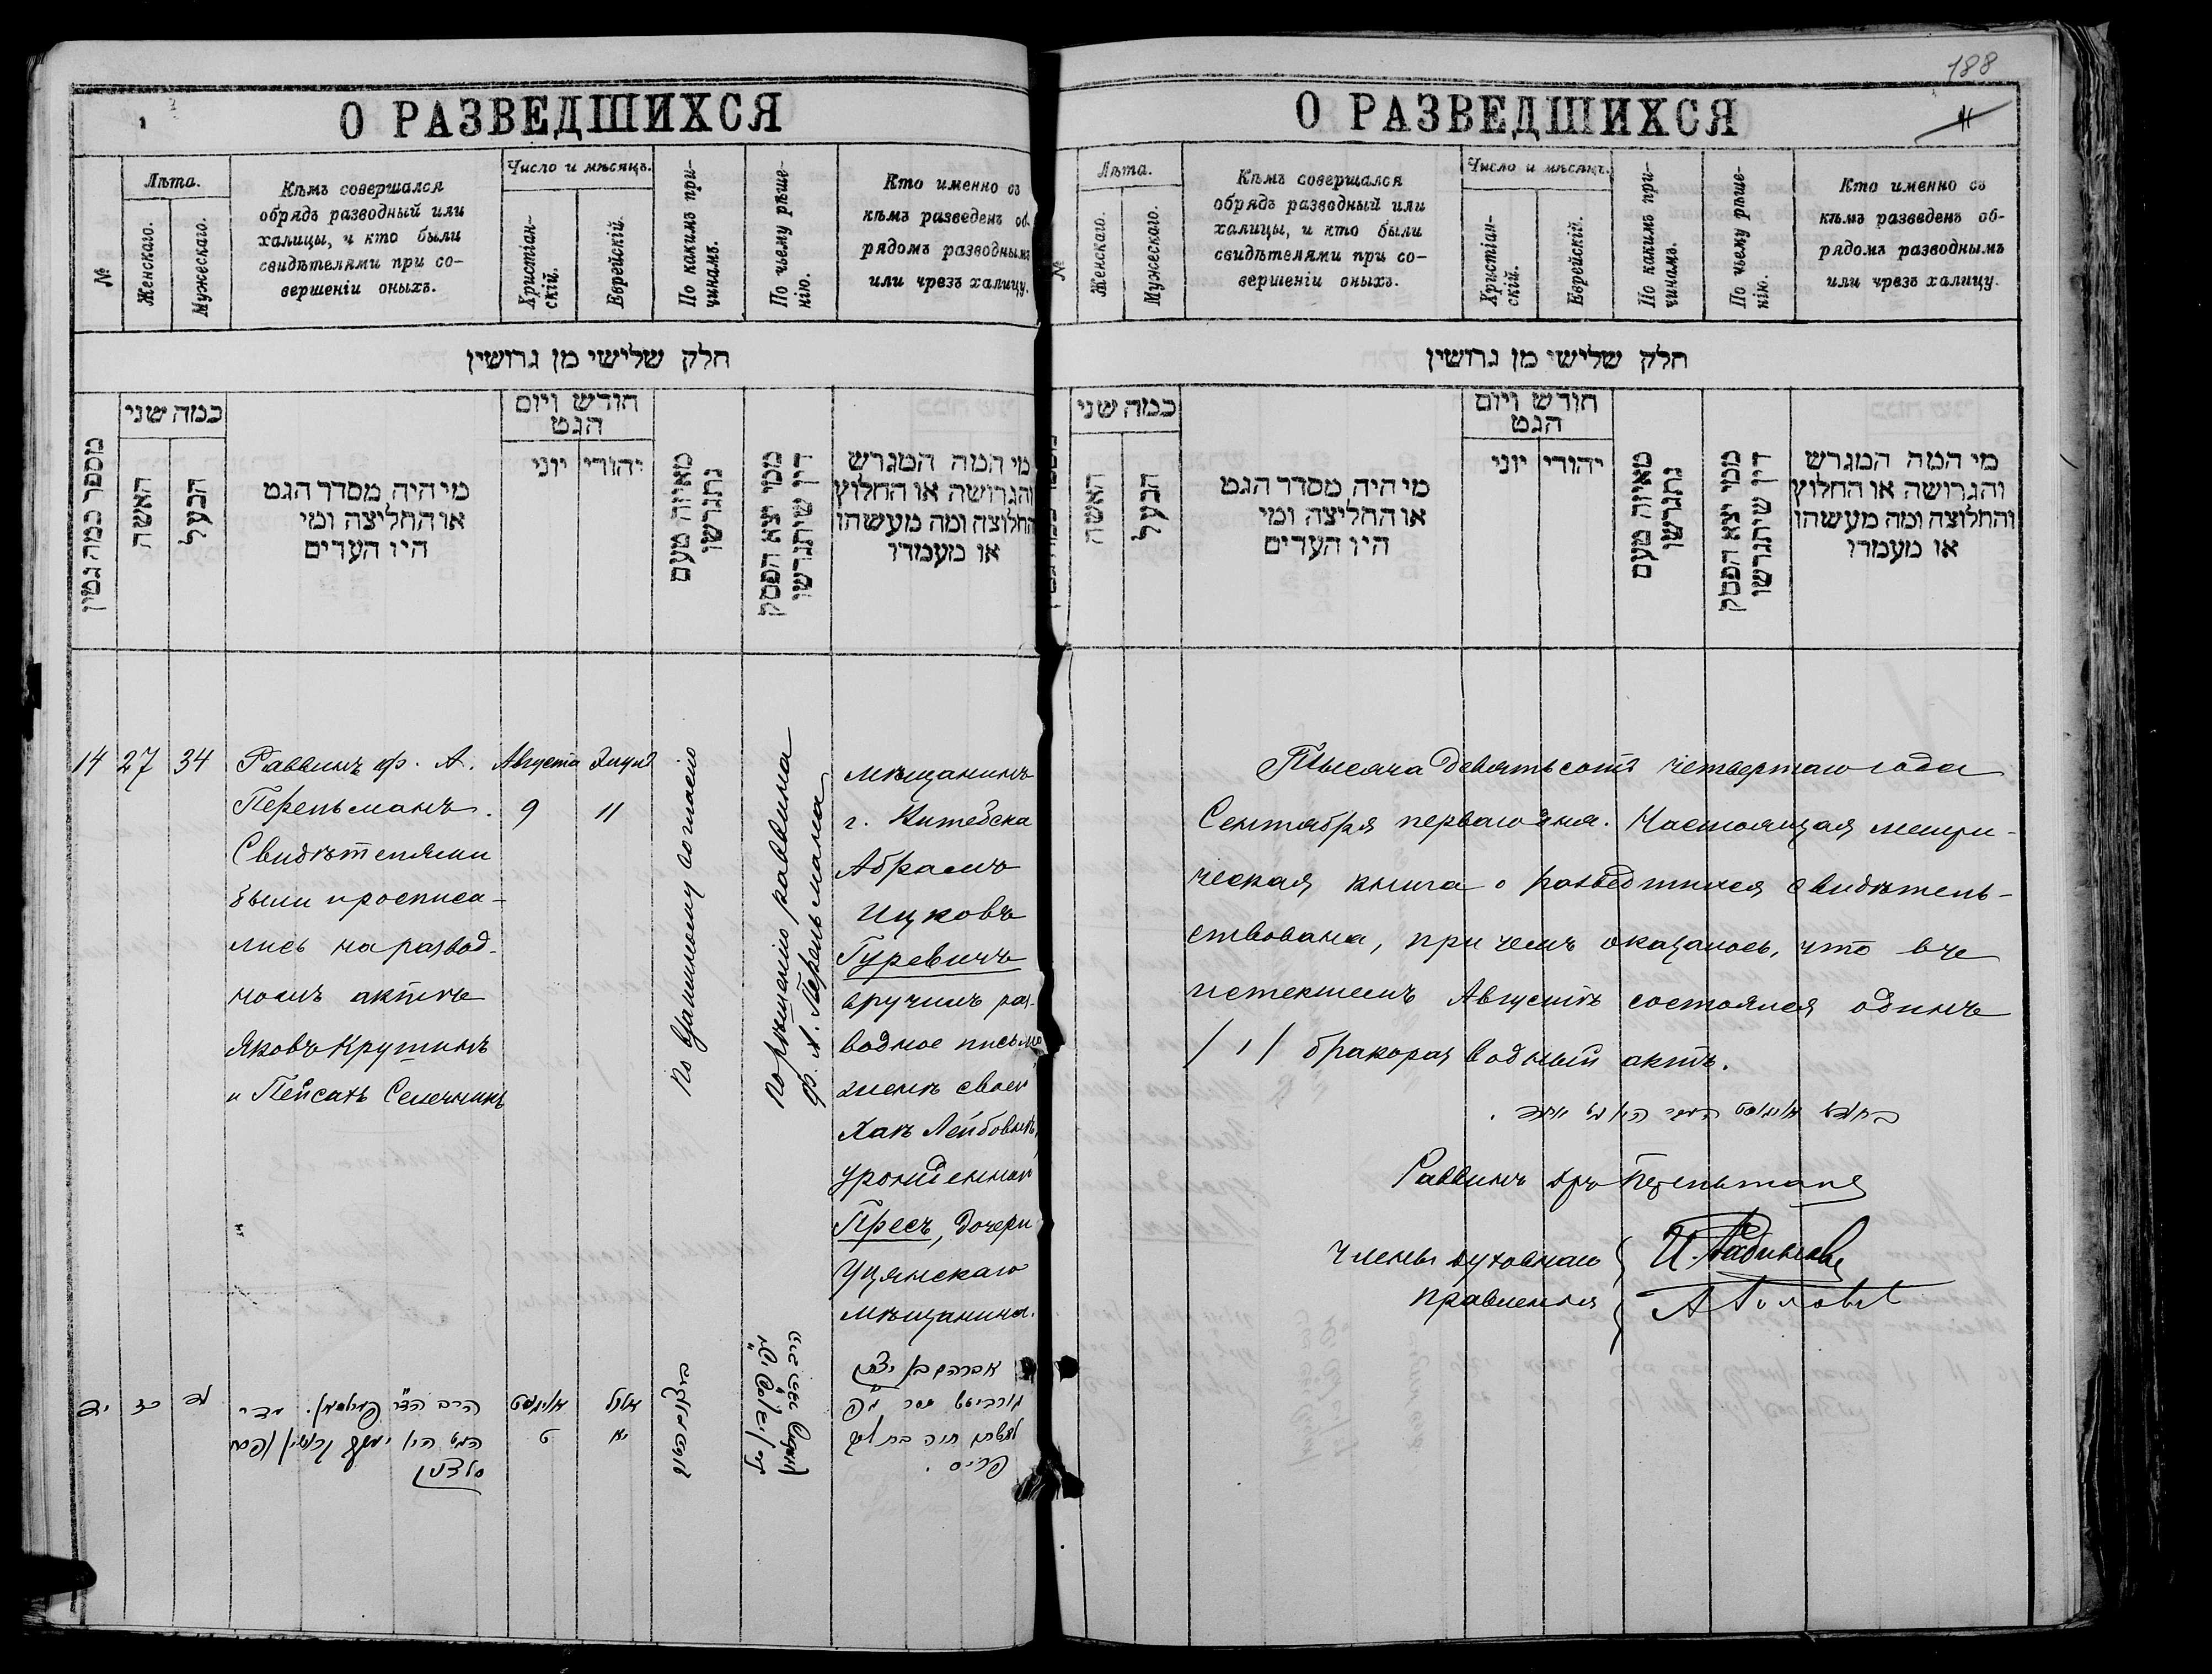 188
О РАЗВЕДШИХСЯ
№
Лѣта.
Женскаго.
Мужескаго.
Кѣмъ совершался
обрядъ разводный или
халицы, и кто были
свидѣтелями при со-
вершеніи оныхъ.
Число и мѣсяцъ.
Христіан-
скій.
Еврейскій.
По какимъ при-
чинамъ.
По чьему рѣше-
нію.
Кто именно съ
кѣмъ разведенъ об-
рядомъ разводнымъ
или чрезъ халицу.
חלק שלישי מן גרושין
מספר כמה גטין
כמה שני
האשה
הבעל
מי היה מסדר הגט
או החליצה ומי
היו העדים
חודש ויום
הגט
יוני
יהודי
מאיזה טעם
נתגרשו
ממי יצא הפסק
דין שיתגרשו
מי המה המגרש
והגרושה או החלוץ
והחלוצה ומה מעשהו
או מעמדו
14
27
34
Раввинъ ф. А.
Перельманъ.
Свидѣтелями
были и росписа-
лись на развод-
номъ актѣ
Яковъ Крупинъ
и Пейсахъ
Августа
9
Элула
11
По взаимному согласію
По рѣшенію раввина
ф. А. Перельмана
Мѣщанинъ
г. Витебска
Абрамъ
Ицковъ
Гуревичъ
вручилъ раз-
водное письмо
женѣ своей
Хаѣ Лейбовнѣ,
урожденной
Пресъ, дочери
Уцянскаго
мѣщанина.
יד
כז
לד
אויגוסט
ט
אלול
יא
אברהם בן יצחק
פריס.
О РАЗВЕДШИХСЯ
№
Лѣта.
Женскаго.
Мужескаго.
Кѣмъ совершался
обрядъ разводный или
халицы, и кто были
свидѣтелями при со-
вершеніи оныхъ.
Число и мѣсяцъ.
Христіан-
скій.
Еврейскій.
По какимъ при-
чинамъ.
По чьему рѣше-
нію.
Кто именно съ
кѣмъ разведенъ об-
рядомъ разводнымъ
или чрезъ халицу.
חלק שלישי מן גרושין
כמה שני
האשה
הבעל
מי היה מסדר הגט
או החליצה ומי
היו העדים
חודש ויום
הגט
יוני
יהודי
מאיזה טעם
נתגרשו
ממי יצא הפסק
דין שיתגרשו
מי המה המגרש
והגרושה או החלוץ
והחלוצה ומה מעשהו
או מעמדו
Тысяча девятьсотъ четвертаго года
Сентября перваго дня. Настоящая метри-
ческая книга о разведшихся свидѣтель-
ствована, при чемъ оказалось, что въ
истекшемъ Августѣ состоялся одинъ
/1/ бракоразводный актъ.
Раввинъ Перельманъ
Члены духовнаго
правленія